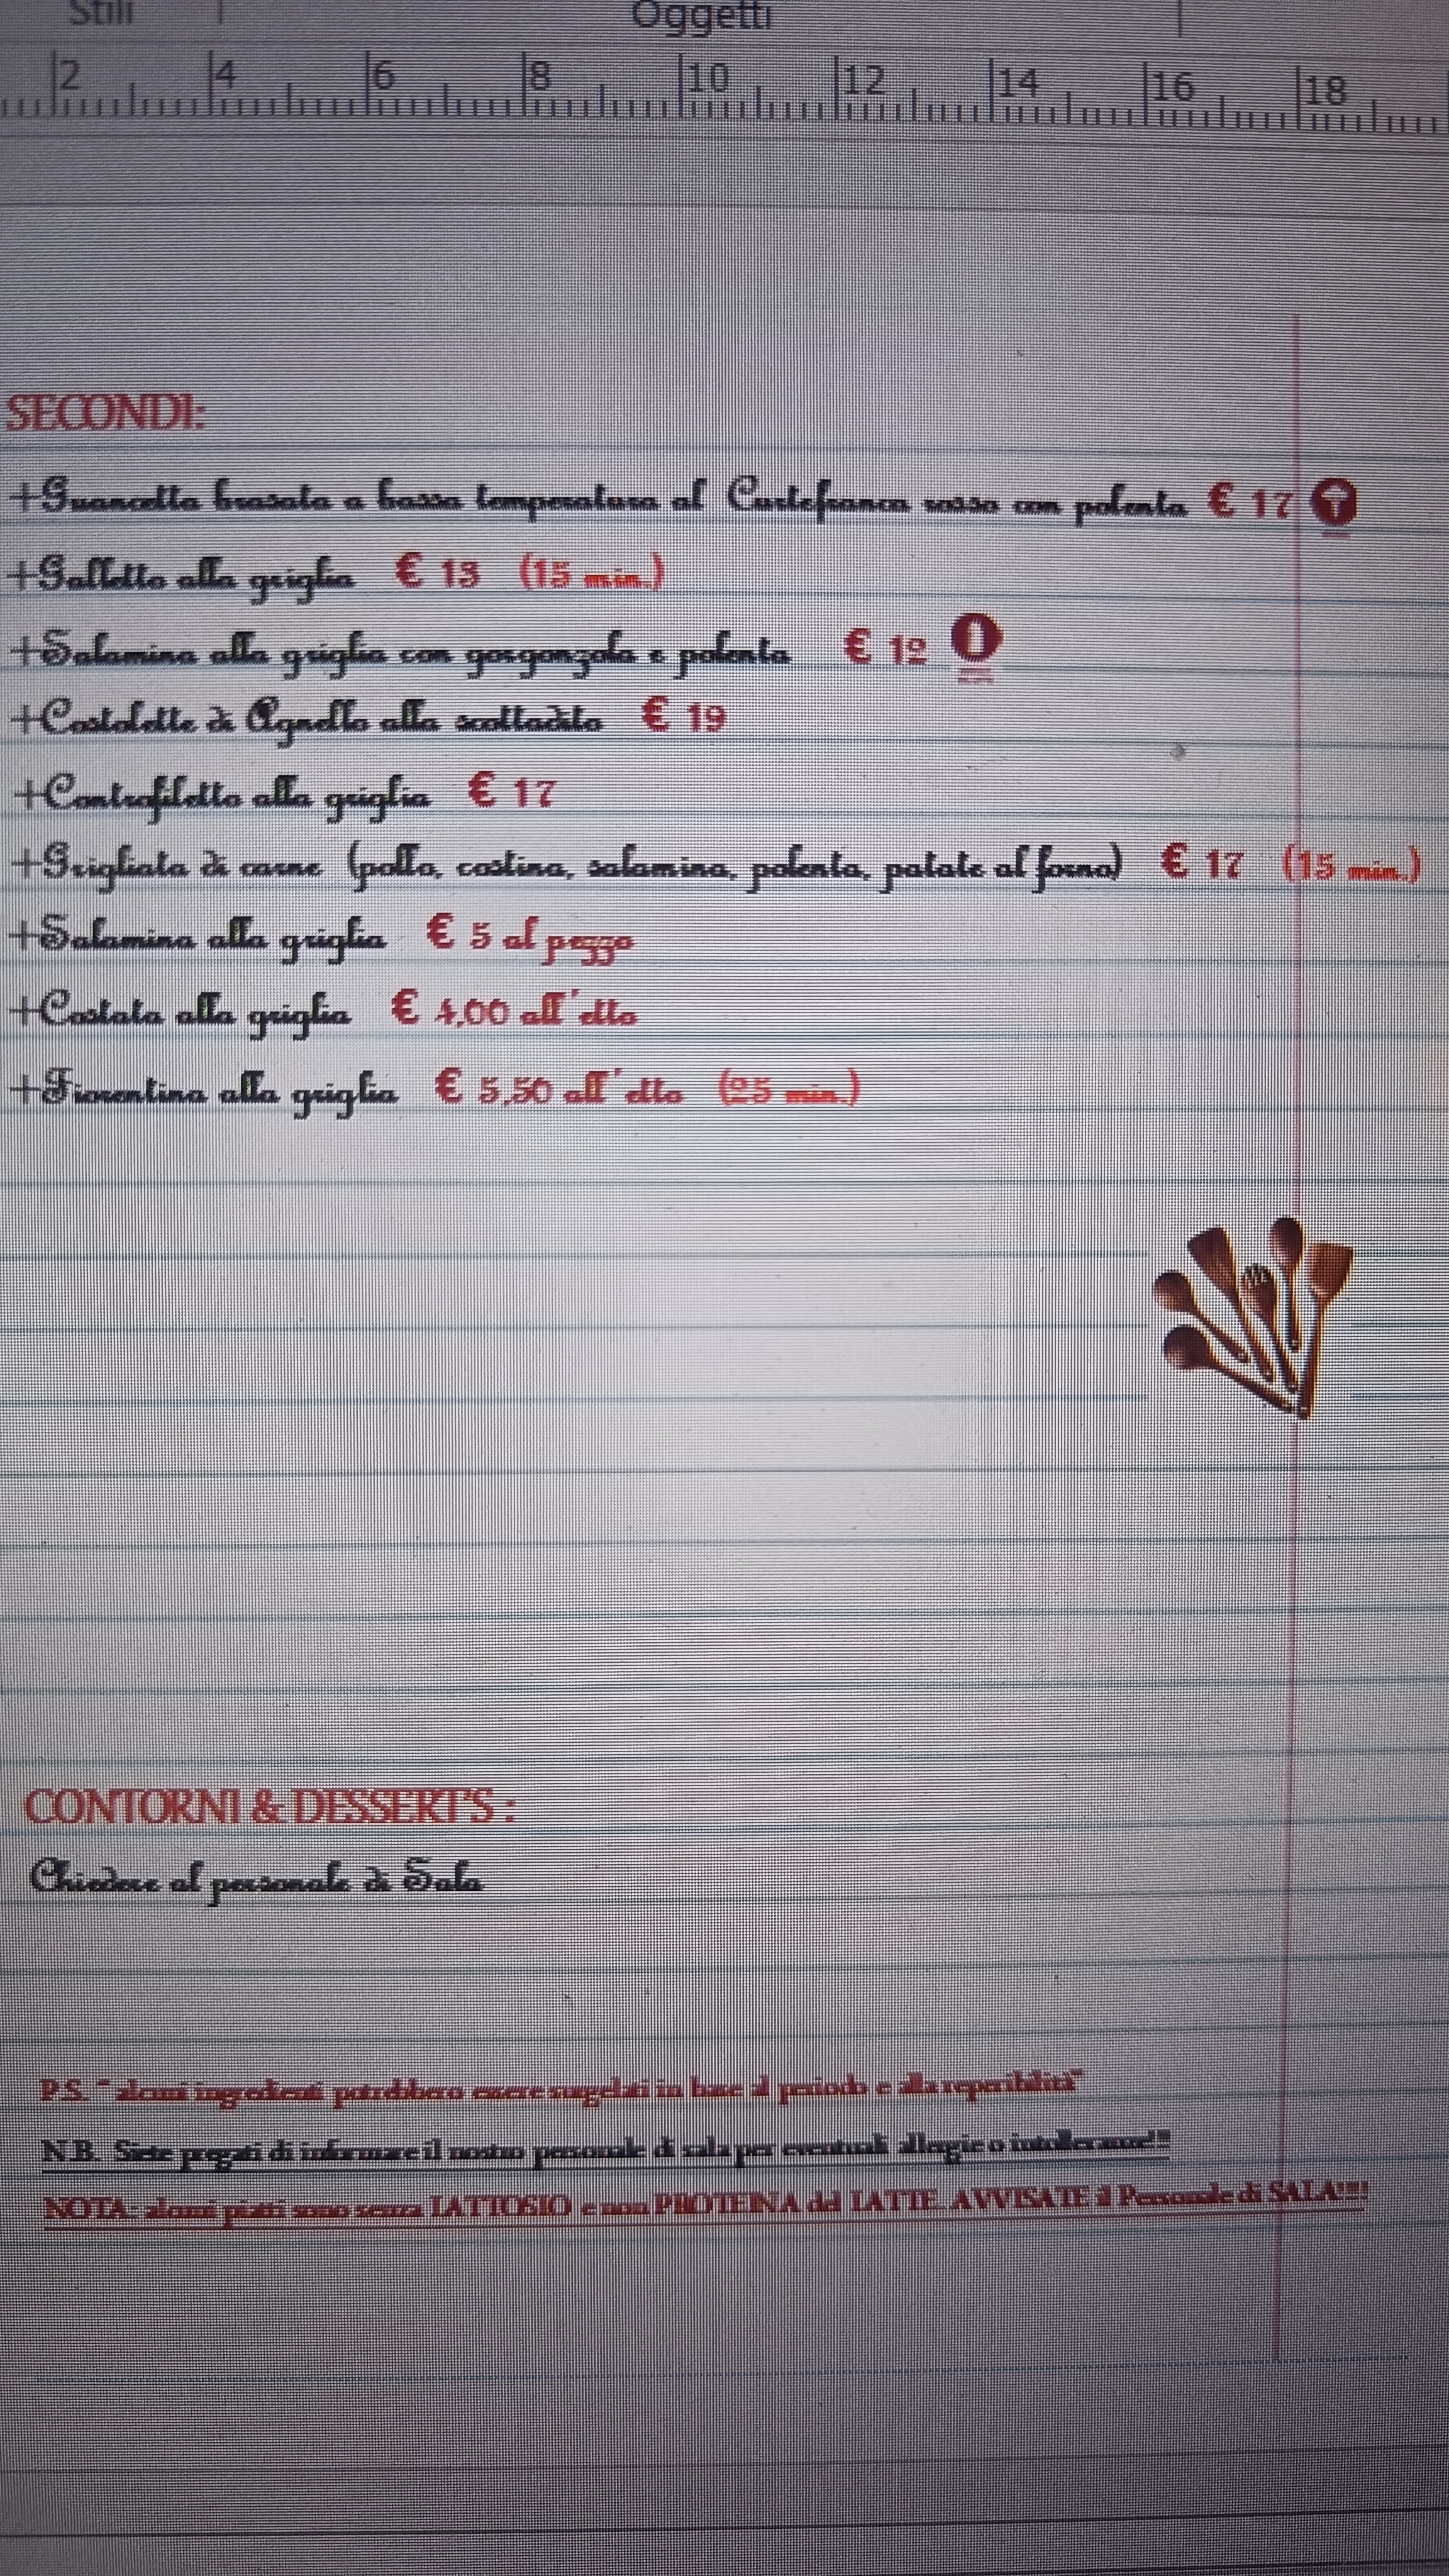 Stili
Oggetti
2 4 6 8 10 12 14 16 18
SECONDI:
+Guancetta brasata a bassa temperatura al Curtefranca rosso con polenta € 17
+Galletto alla griglia € 13 (15 min.)
+Salamina alla griglia con gorgonzola e polenta € 12
+Costolette di Agnello alla scottadito € 19
+Controfiletto alla griglia € 17
+Grigliata di carne (pollo, costina, salamina, polenta, patate al forno) € 17 (15 min.)
+Salamina alla griglia € 5 al pezzo
+Costata alla griglia € 4,00 all'etto
+Fiorentina alla griglia € 5,50 all'etto (25 min.)
CONTORNI & DESSERT'S :
Chiedere al personale di Sala
P.S. " alcuni ingredienti potrebbero essere surgelati in base al periodo e alla reperibilità"
N.B. Siete pregati di informare il nostro personale di sala per eventuali allergie o intolleranze!!!
NOTA: alcuni piatti sono senza LATTOSIO e non PROTEINA del LATTE. AVVISATE il Personale di SALA!!!!